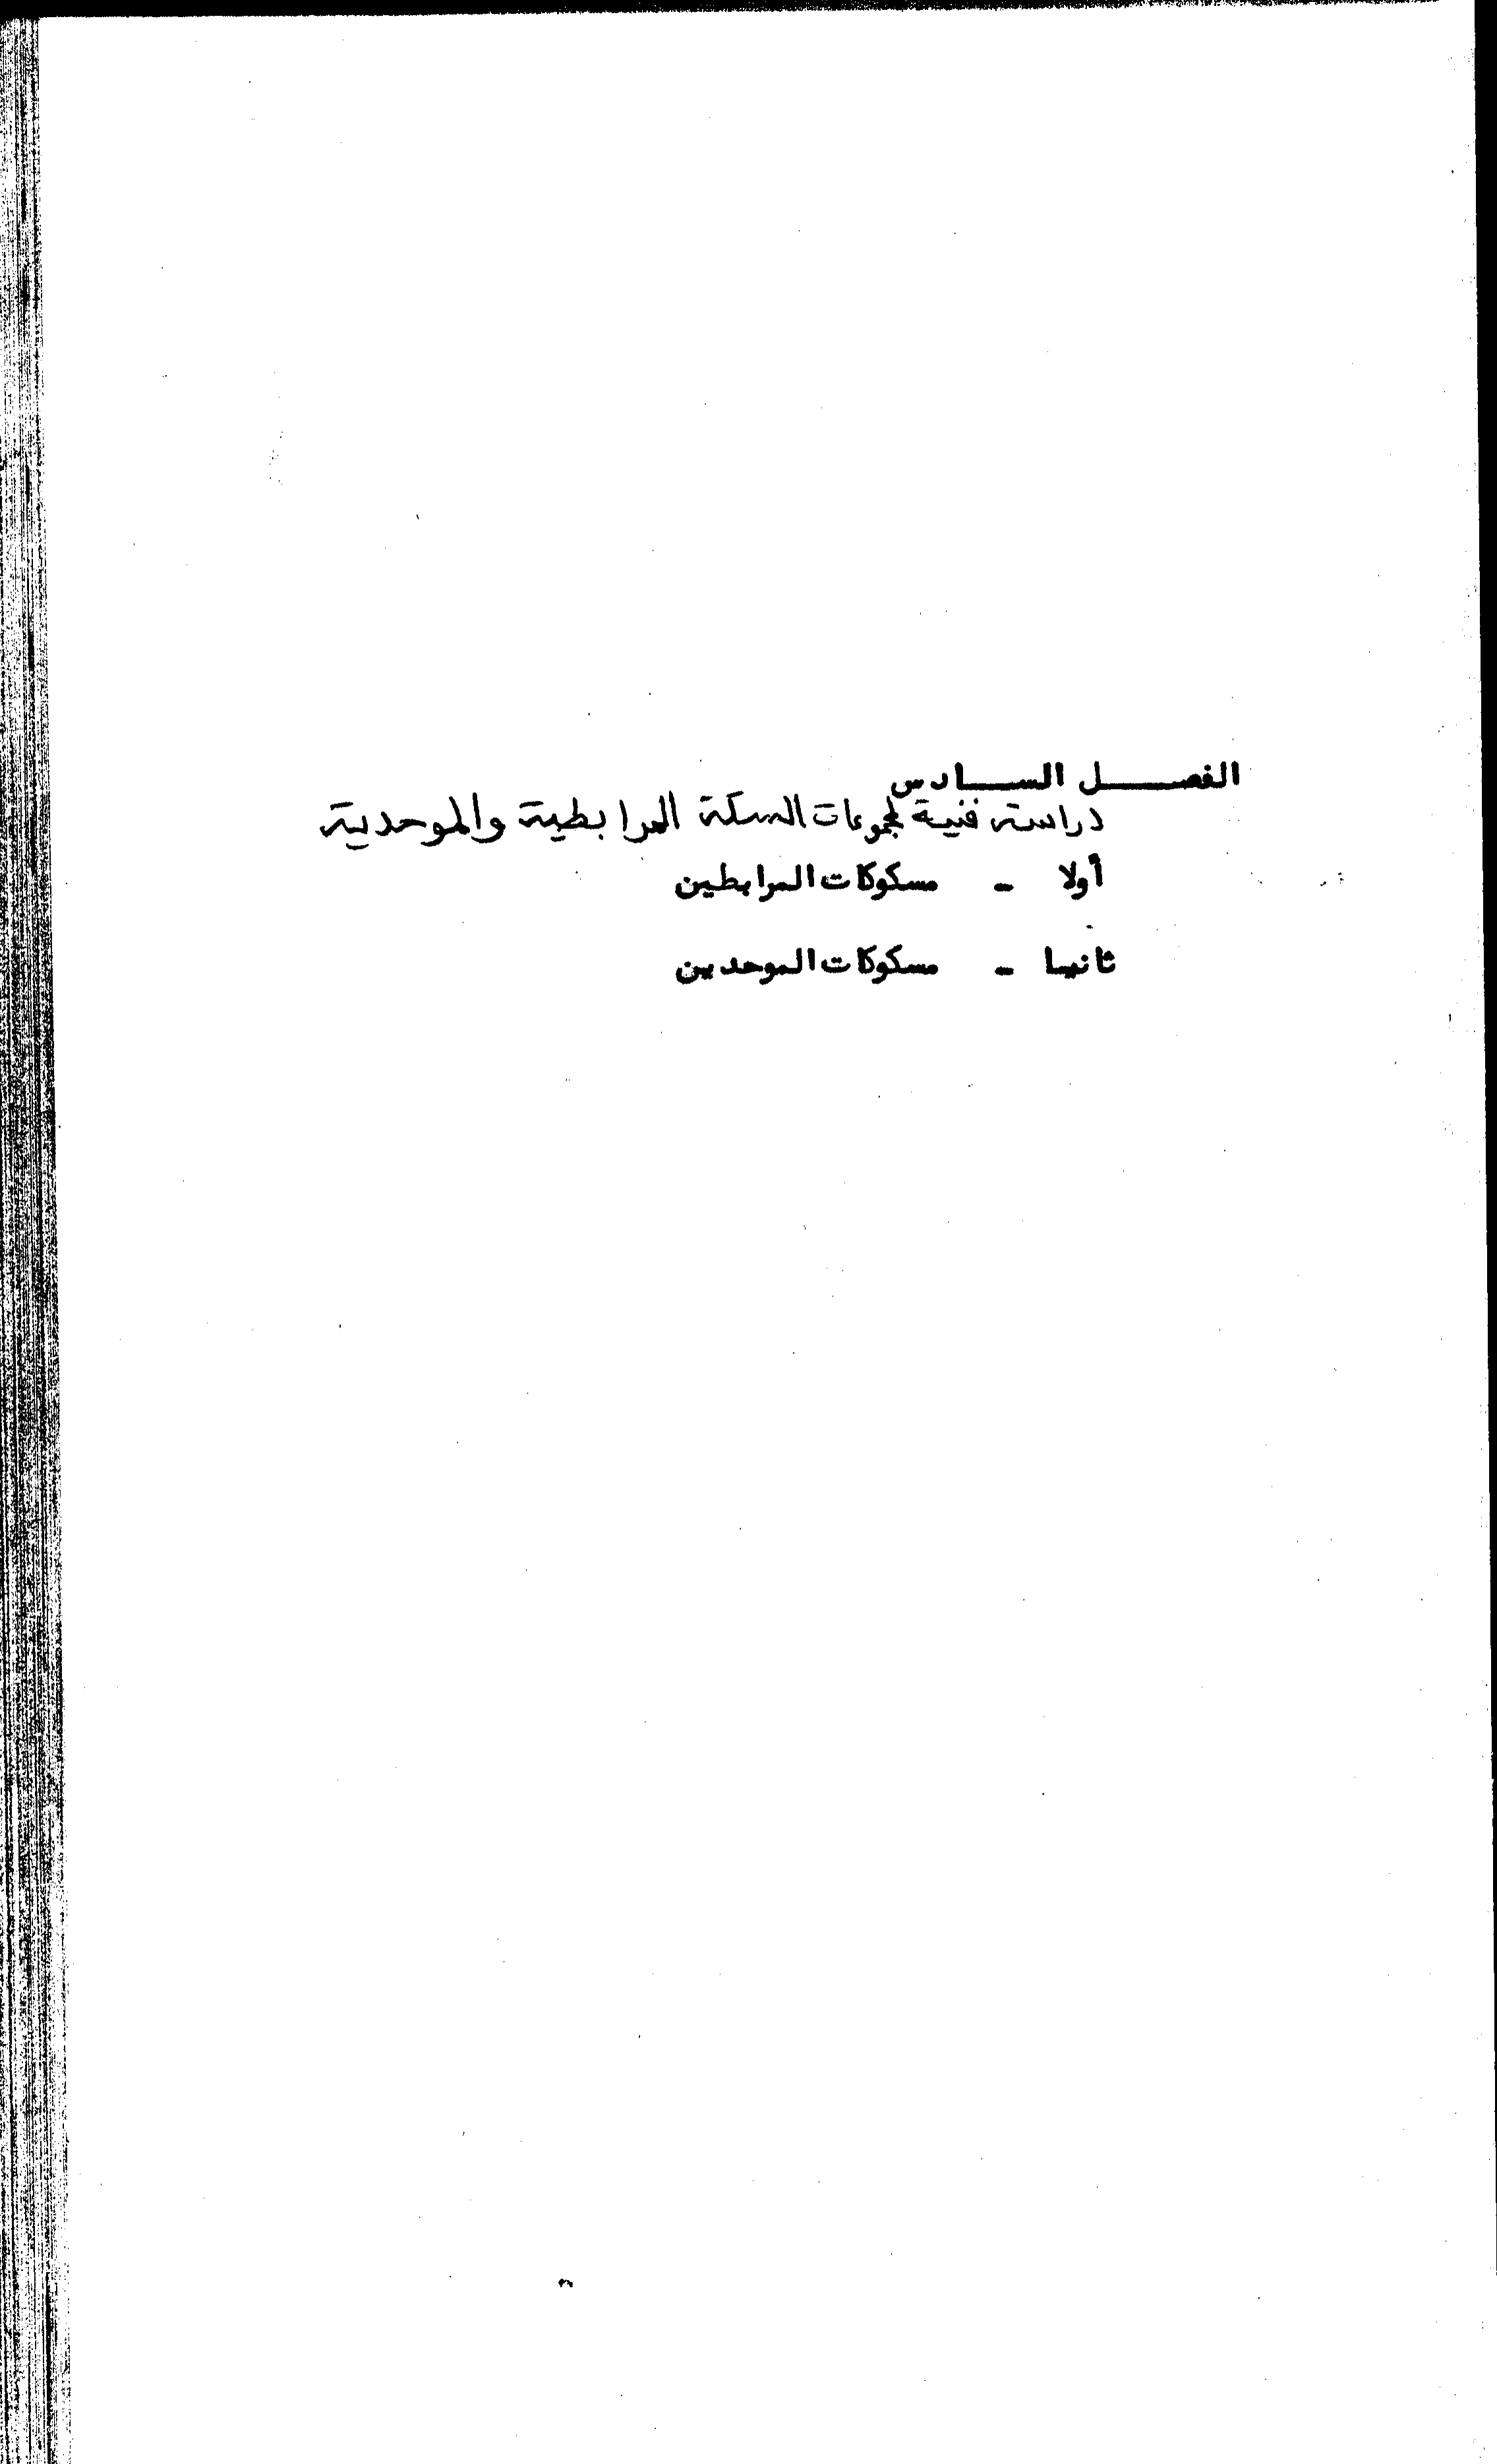 الفصل السادس
دراسة فنية لمجموعات السكة المرابطية والموحدية
أولا - مسكوكات المرابطين
ثانيا - مسكوكات الموحدين